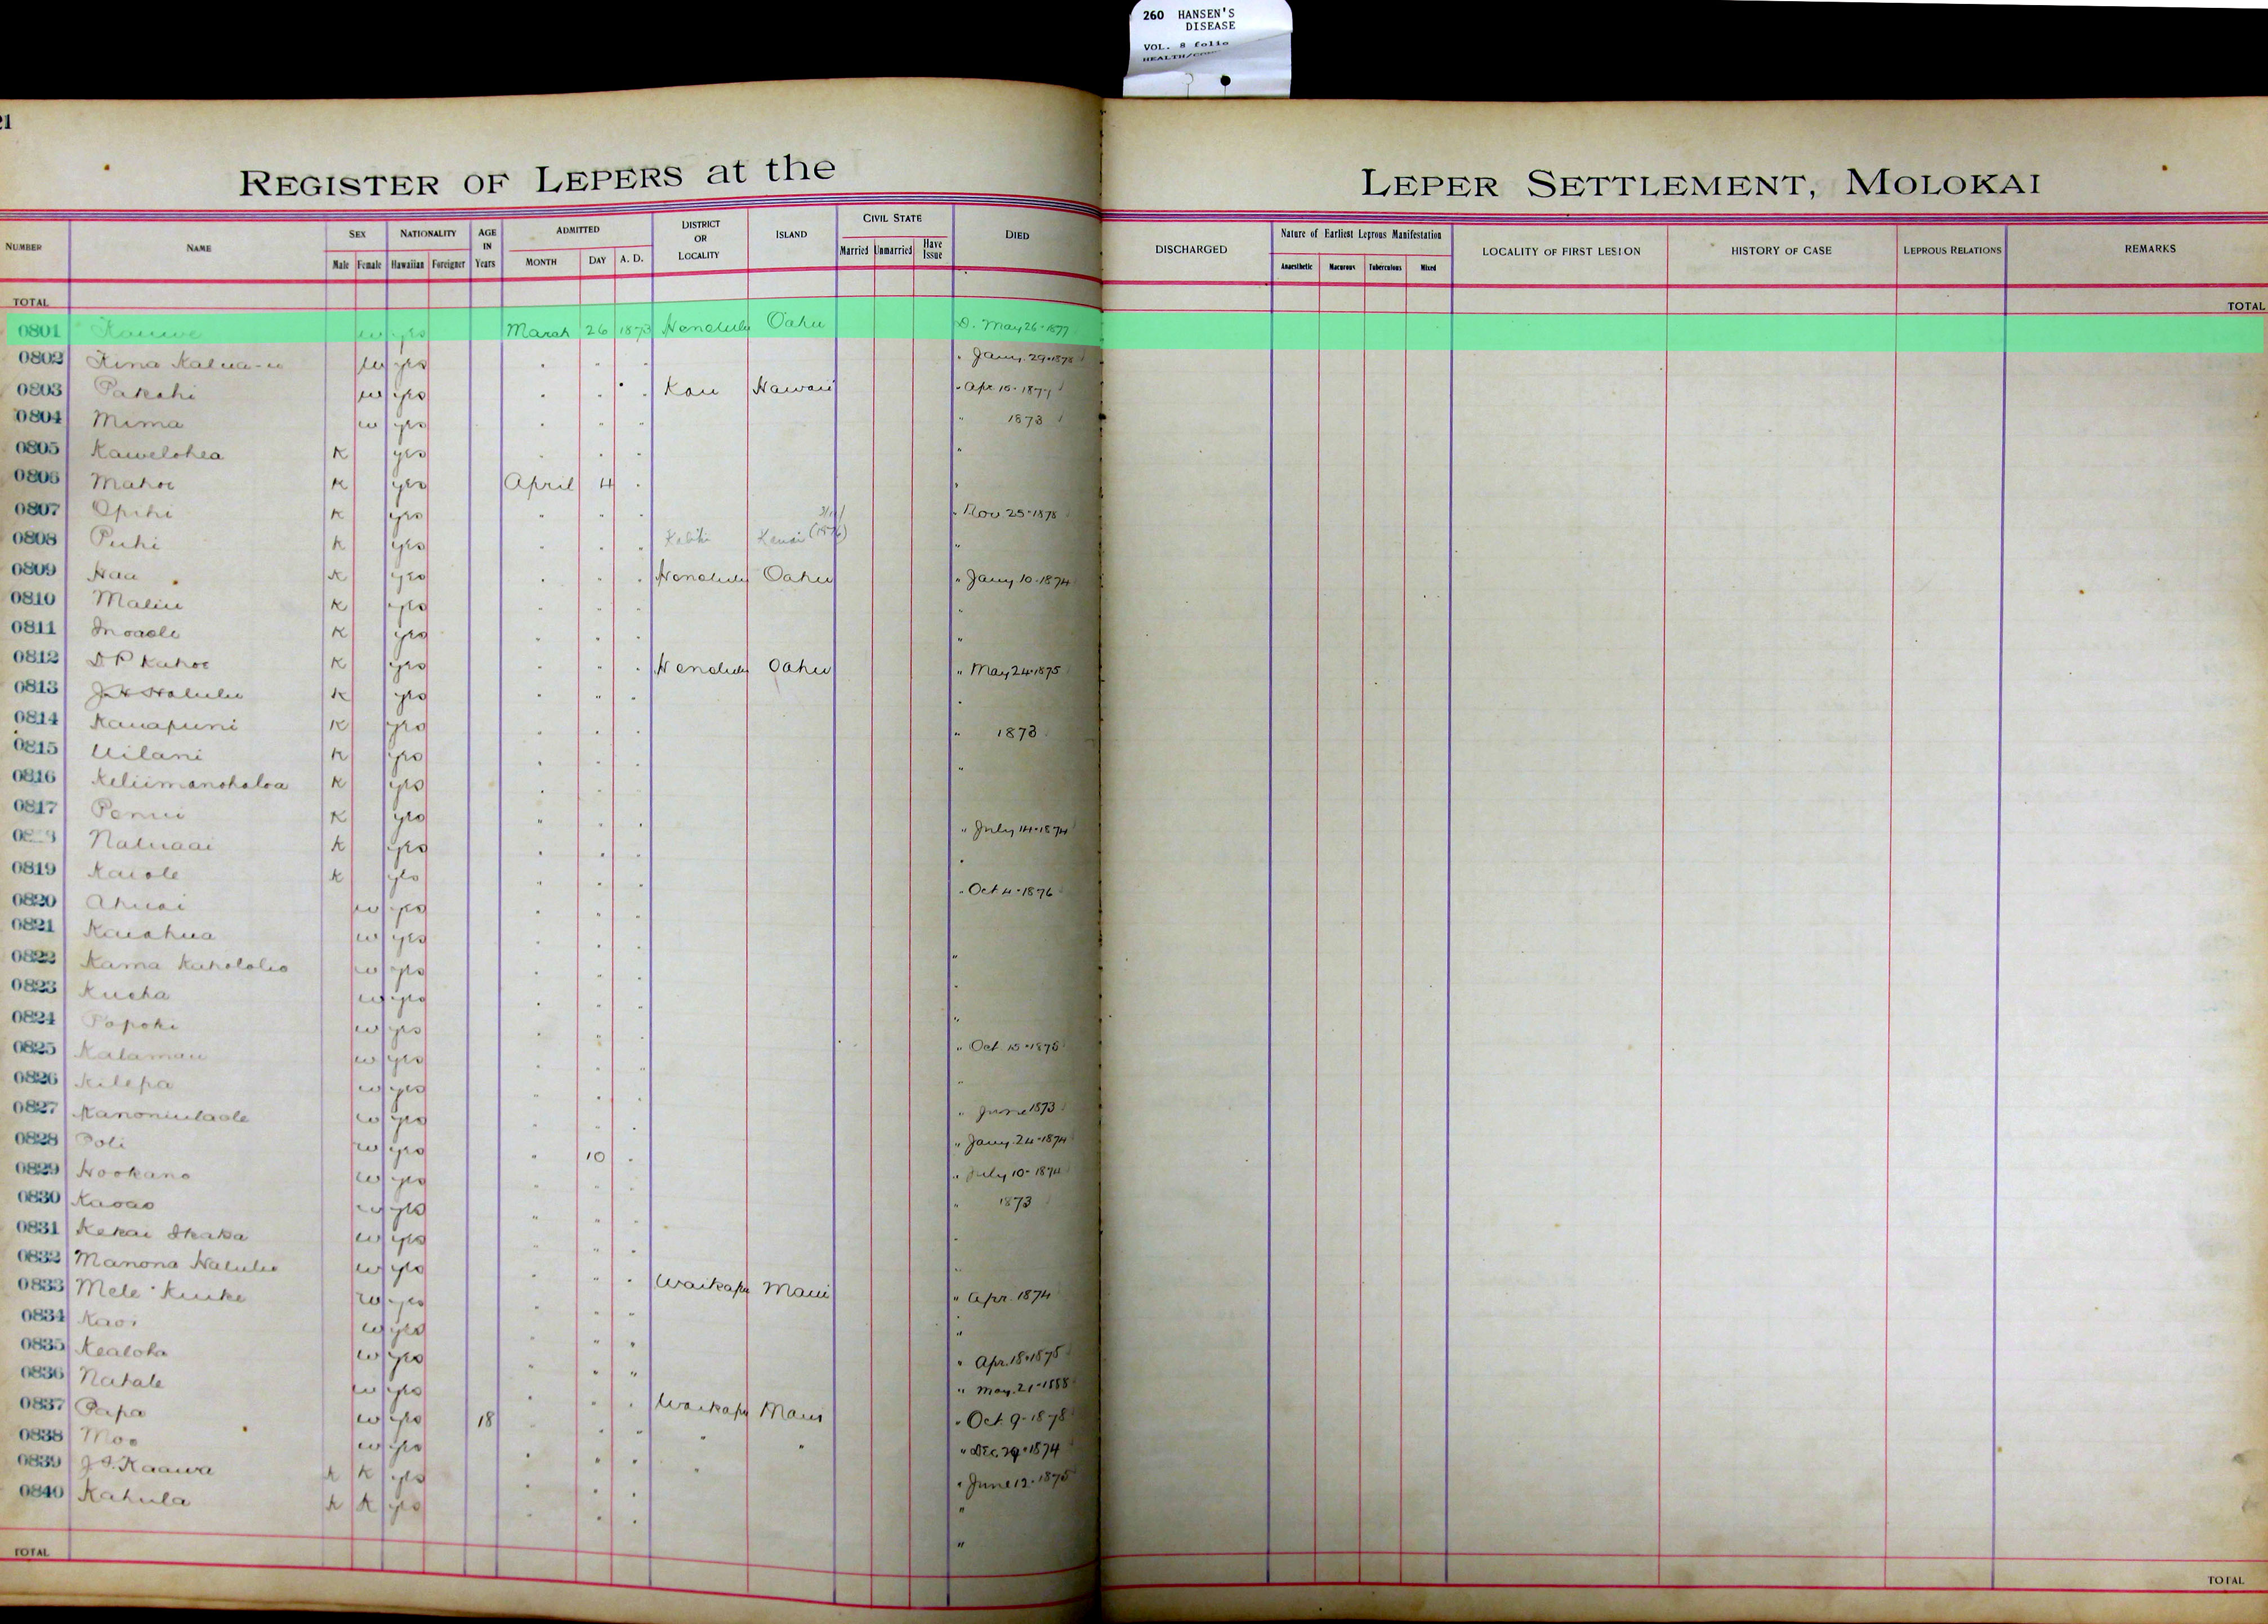 260 HANSEN'S
DISEASE
VOL. 8 folio
21
REGISTER OF LEPERS at the LEPER SETTLEMENT, MOLOKAI
NUMBER NAME SEX Male Female NATIONALITY Hawaiian Foreigner AGE IN Years ADMITTED MONTH DAY A. D. DISTRICT OR LOCALITY ISLAND CIVIL STATE Married Unmarried Have Issue DIED DISCHARGED Nature of Earliest Leprous Manifestation Anaesthetic Macurous Tuberculous Mixed LOCALITY OF FIRST LESION HISTORY OF CASE LEPROUS RELATIONS REMARKS
TOTAL TOTAL
0801 Kauwe w yes March 26 1873 Honolulu Oahu D. May 26-1877
0802 Kina Kalua-u w yes " " " " Jany. 29-1878
0803 Pakahi w yes " " " Kau Hawaii " Apr 15-1877
0804 Mima w yes " " " " 1873
0805 Kawelohea K yes " " " "
0806 Mahoe K yes April 4 " "
0807 Opihi K yes " " " " Nov 25-1878
0808 Puhi K yes " " " Kauai "
0809 Haa K yes " " " Honolulu Oahu " Jany 10-1874
0810 Maliu K yes " " " "
0811 Inoaole K yes " " " "
0812 D P Kahoe K yes " " " Honolulu Oahu " May 24-1875
0813 J H Halulu K yes " " " "
0814 Kauapuni K yes " " " " 1873
0815 Uilani K yes " " " "
0816 Keliimanohaloa K yes " "
0817 Penui K yes " " " " July 14-1874
Naluaai K yes " " " "
0819 Kaiole K yes " " " " Oct 4-1876
0820 Ahuai w yes " " "
0821 Kaiahua w yes " " " "
0822 Kama Kahololio w yes " " " "
0823 Kueha w yes " " " "
0824 Popoki w yes " " " " Oct. 15-1875
0825 Kalamau w yes " " " "
0826 Kilepa w yes " " " " June 1873
0827 Kanoniulaole w yes " " " " Jany. 24-1874
0828 Poli w yes " 10 " " July 10-1874
0829 Hookano w yes " " " " 1873
0830 Kaoao w yes " " "
0831 Kekai Ikaka w yes " " " "
0832 Manona Halulu w yes " " " Waikapu Maui "
0833 Mele Kuike w yes " " " " Apr. 1874
0834 Kaoi w yes " " " "
0835 Kealoha w yes " " " " Apr. 18-1875
0836 Nahale w yes " " " Waikapu Maui " May. 21-1888
0837 Papa w yes 18 " " " " " " Oct. 9-1878
0838 Moo w yes " " " " " Dec. 29-1874
0839 J. I. Kaawa K K yes " " " " June 12-1875
0840 Kahula K K yes " " " "
TOTAL TOTAL